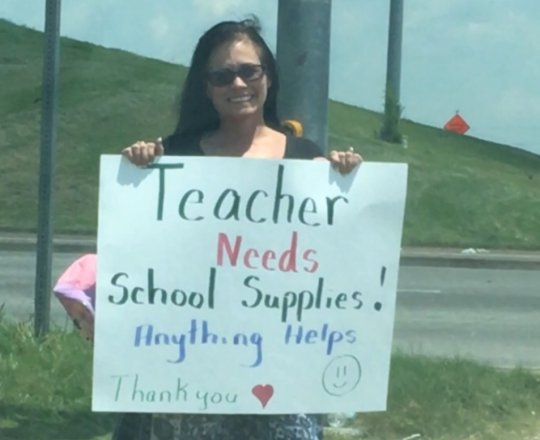 Teacher
Needs
School Supplies!
Anything Helps
Thank you